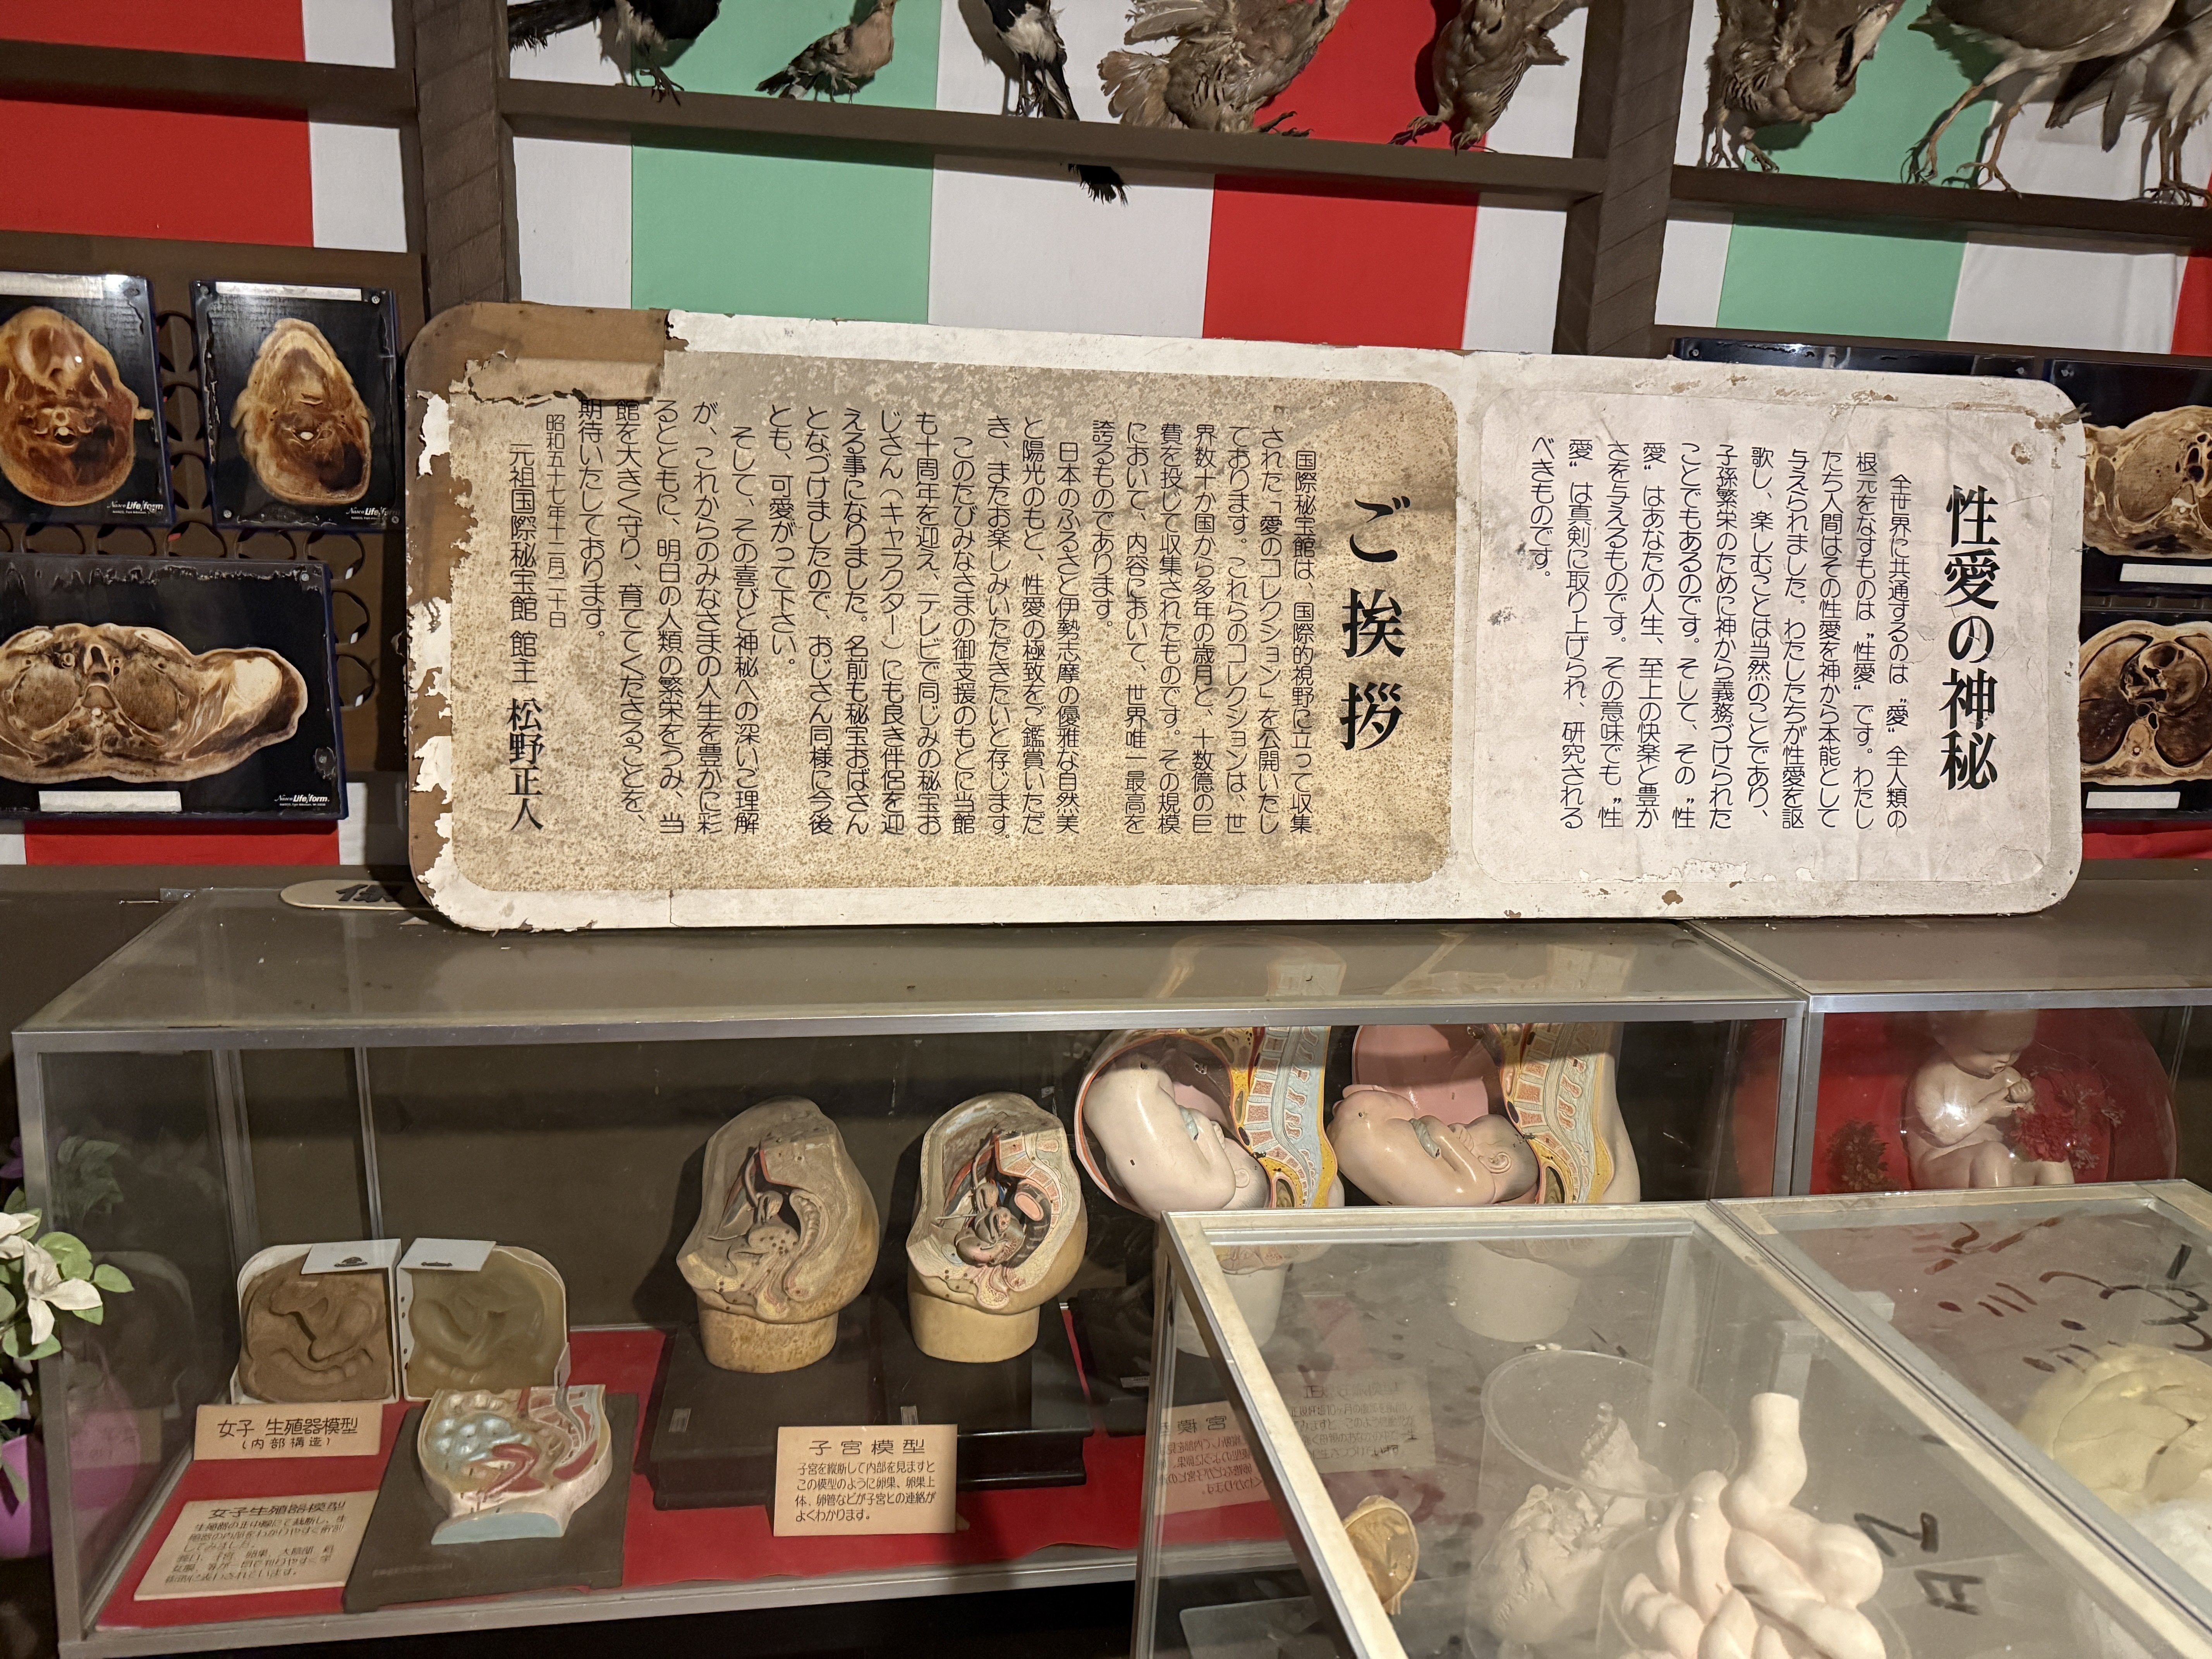 性愛の神秘
全世界に共通するのは〝愛〟全人類の
根元をなすものは〝性愛〟です。わたし
たち人間はその性愛を神から本能として
与えられました。わたしたちが性愛を謳
歌し、楽しむことは当然のことであり、
子孫繁栄のために神から義務づけられた
ことでもあるのです。そして、その〝性
愛〟はあなたの人生、至上の快楽と豊か
さを与えるものです。その意味でも〝性
愛〟は真剣に取り上げられ、研究される
べきものです。
ご挨拶
国際秘宝館は、国際的視野に立って収集
された「愛のコレクション」を公開いたし
ております。これらのコレクションは、世
界数十か国から多年の歳月と、十数億の巨
費を投じて収集されたものです。その規模
において、内容において、世界唯一最高を
誇るものであります。
日本のふるさと伊勢志摩の優雅な自然美
と陽光のもと、性愛の極致をご鑑賞いただ
き、またお楽しみいただきたいと存じます。
このたびみなさまの御支援のもとに当館
も十周年を迎え、テレビで同じみの秘宝お
じさん(キャラクター)にも良き伴侶を迎
える事になりました。名前も秘宝おばさん
となづけましたので、おじさん同様に今後
とも、可愛がって下さい。
そして、その喜びと神秘への深いご理解
が、これからのみなさまの人生を豊かに彩
るとともに、明日の人類の繁栄をうみ、当
館を大きく守り、育ててくださることを、
期待いたしております。
昭和五十七年十二月二十日
元祖国際秘宝館 館主 松野正人
Nasco Life/form
Nasco Life/form
Nasco Life/form
女子 生殖器模型
(内部構造)
女子生殖器模型
子宮模型
子宮を縦断して内部を見ますと
この模型のように卵巣、卵巣上
体、卵管などが子宮との連絡が
よくわかります。